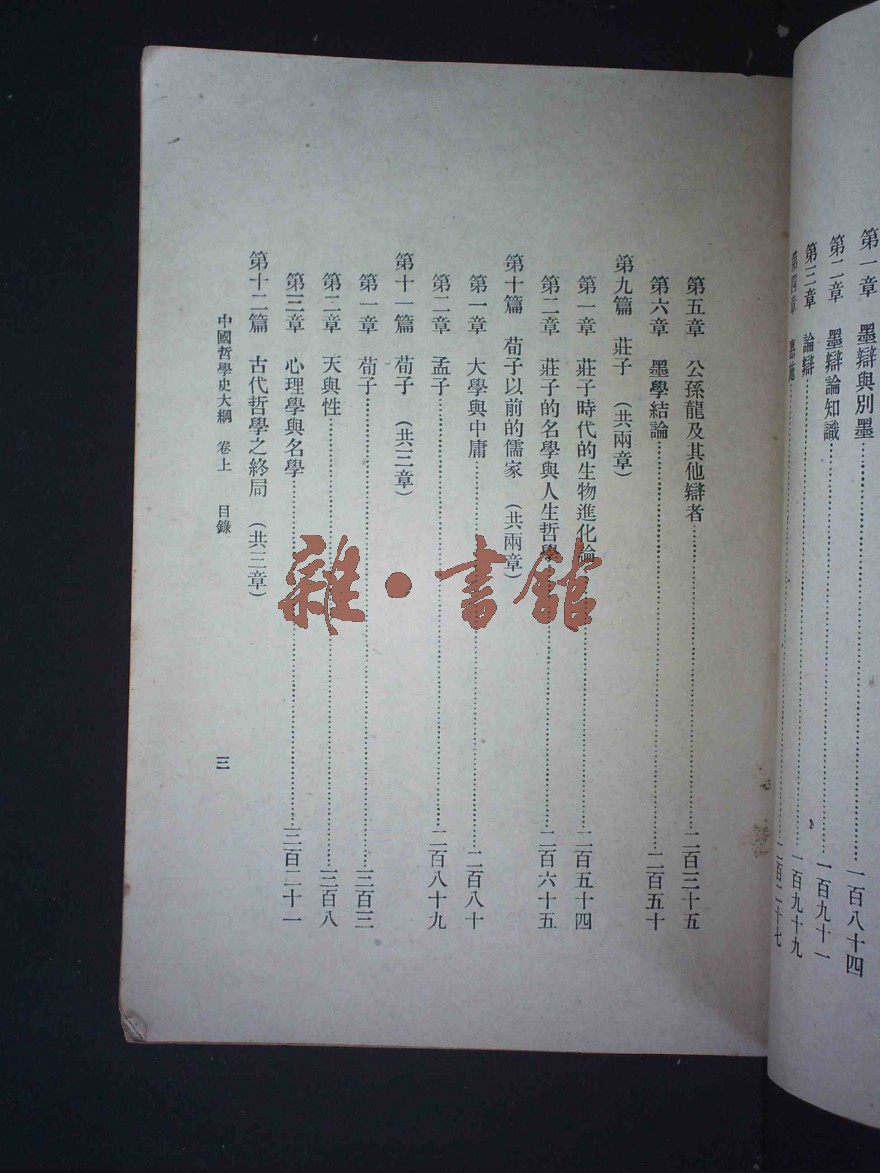 第一章 墨辯與別墨……一百八十四
第二章 墨辯論知識……一百九十一
第三章 論辯……一百九十九
第四章 惠施……二百二十七
第五章 公孫龍及其他辯者……二百三十五
第六章 墨學結論……二百五十
第九篇 莊子 (共兩章)
第一章 莊子時代的生物進化論……二百五十四
第二章 莊子的名學與人生哲學……二百六十五
第十篇 荀子以前的儒家 (共兩章)
第一章 大學與中庸……二百八十
第二章 孟子……二百八十九
第十一篇 荀子 (共三章)
第一章 荀子……三百三
第二章 天與性……三百八
第三章 心理學與名學……三百二十一
第十二篇 古代哲學之終局 (共三章)
中國哲學史大綱 卷上 目錄 三
雜·書館